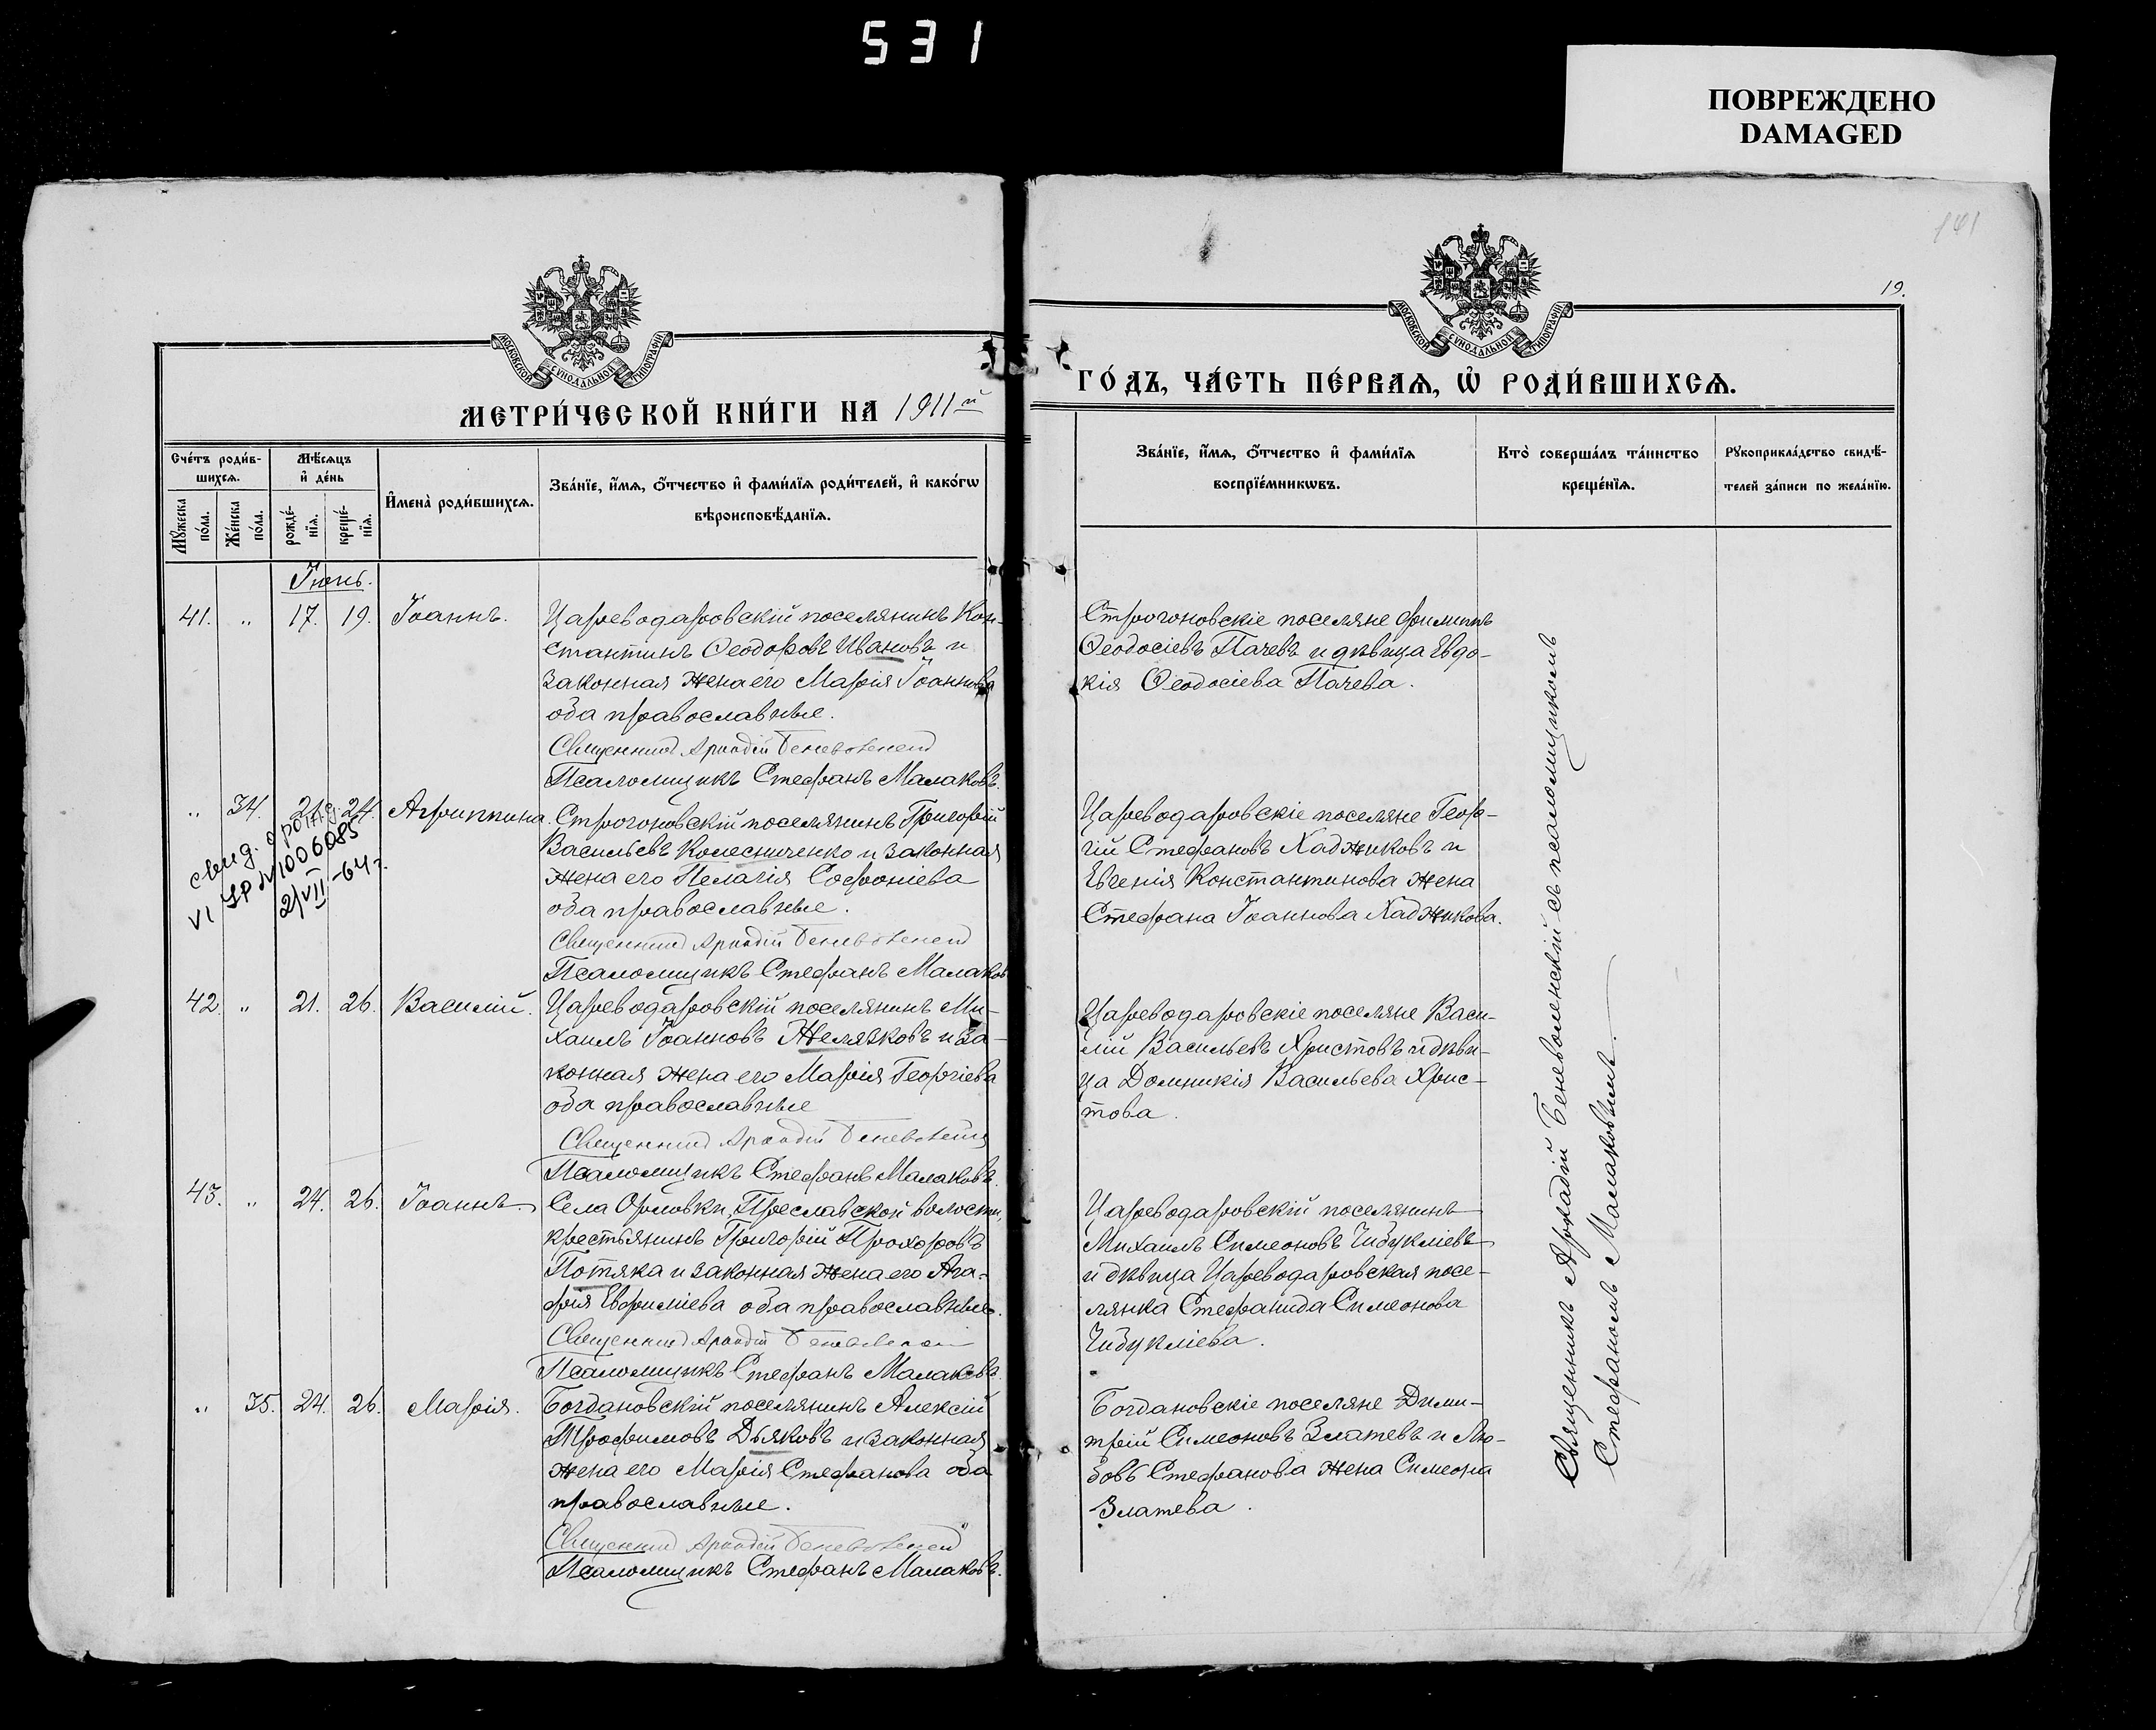 531
ПОВРЕЖДЕНО
DAMAGED
161
19.
МОСКОВСКОЙ СѴНОДАЛЬНОЙ ТИПОГРАФІИ
МОСКОВСКОЙ СѴНОДАЛЬНОЙ ТИПОГРАФІИ
МЕТРИ́ЧЕСКОЙ КНИ́ГИ НА 1911й
ГО́ДЪ, ЧА́СТЬ ПЕ́РВАѦ, Ѡ҆ РОДИ́ВШИХСѦ.
Сче́тъ роди́в-
шихсѧ.
Мꙋ́жеска
по́ла.
Же́нска
по́ла.
Мѣ́сѧцъ
и҆ де́нь
рожде́-
нїѧ.
креще́-
нїѧ.
И҆мена̀ роди́вшихсѧ.
Зва́нїе, и҆́мѧ, ѻ҆́тчество и҆ фами́лїѧ роди́телей, и҆ како́гѡ
вѣроисповѣ́данїѧ.
Зва́нїе, и҆́мѧ, ѻ҆́тчество и҆ фами́лїѧ
воспрїе́мникѡвъ.
Кто̀ соверша́лъ та́инство
креще́нїѧ.
Рꙋкоприкла́дство свидѣ́-
телей за́писи по жела́нїю.
Іюнь.
41. „ 17. 19. Іоаннъ.
Цареводаровскій поселянинъ Кон-
стантинъ Ѳеодоровъ Ивановъ и
законная жена его Марія Іоаннова
оба православные.
Священникъ Аркадій Беневоленскій
Псаломщикъ Стефанъ Малаковъ.
Строгоновскіе поселяне Филиппъ
Ѳеодосіевъ Пачевъ и дѣвица Евдо-
кія Ѳеодосіева Пачева.
„ 34. 21. 24. Агриппина.
свид. о рожд.
VI ЯР № 1006085
2/VII-64г.
Строгоновскій поселянинъ Григорій
Васильевъ Колесниченко и законная
жена его Пелагія Софоніева
оба православные.
Священникъ Аркадій Беневоленскій
Псаломщикъ Стефанъ Малаков
Цареводаровскіе поселяне Геор-
гій Стефановъ Хаджиковъ и
Евгенія Константинова жена
Стефана Іоаннова Хаджикова.
42. „ 21. 26. Василій.
Цареводаровскій поселянинъ Ми-
хаилъ Іоанновъ Желязковъ и за-
конная жена его Марія Георгіева
оба православные
Священникъ Аркадій Беневоленскій
Псаломщикъ Стефанъ Малаковъ.
Цареводаровскіе поселяне Васи-
лій Васильевъ Христовъ и дѣви-
ца Домникія Васильева Хрис-
това.
43. „ 24. 26. Іоаннъ.
Села Орловки, Преславской волости,
крестьянинъ Григорій Прохоровъ
Потяка и законная жена его Ага-
фія Евфиміева оба православные.
Священникъ Аркадій Беневоленскій
Псаломщикъ Стефанъ Малаковъ.
Цареводаровскій поселянинъ
Михаилъ Симеоновъ Чибукліевъ
и дѣвица Цареводаровская посе-
лянка Стефанида Симеонова
Чибукліева.
„ 35. 24. 26. Марія.
Богдановскій поселянинъ Алексій
Трофимовъ Дьяковъ и законная
жена его Марія Стефанова оба
православные.
Священникъ Аркадій Беневоленскій
Псаломщикъ Стефанъ Малаковъ.
Богдановскіе поселяне Дими-
трій Симеоновъ Златевъ и Лю-
бовь Стефанова жена Симеона
Златева.
Священникъ Аркадій Беневоленскій съ псаломщикомъ
Стефаномъ Малаковымъ.